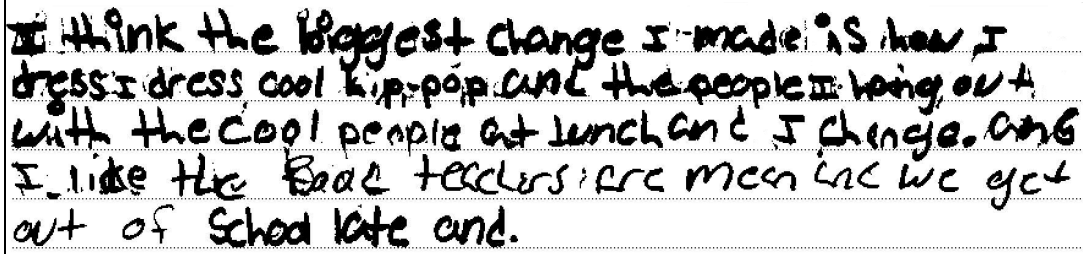 I think the biggest change I made is how I
dress I dress cool hip-pop and the people I hang out
with the cool people at lunch and I change. and
I like the Bad teachers are mean and we get
out of School late and.